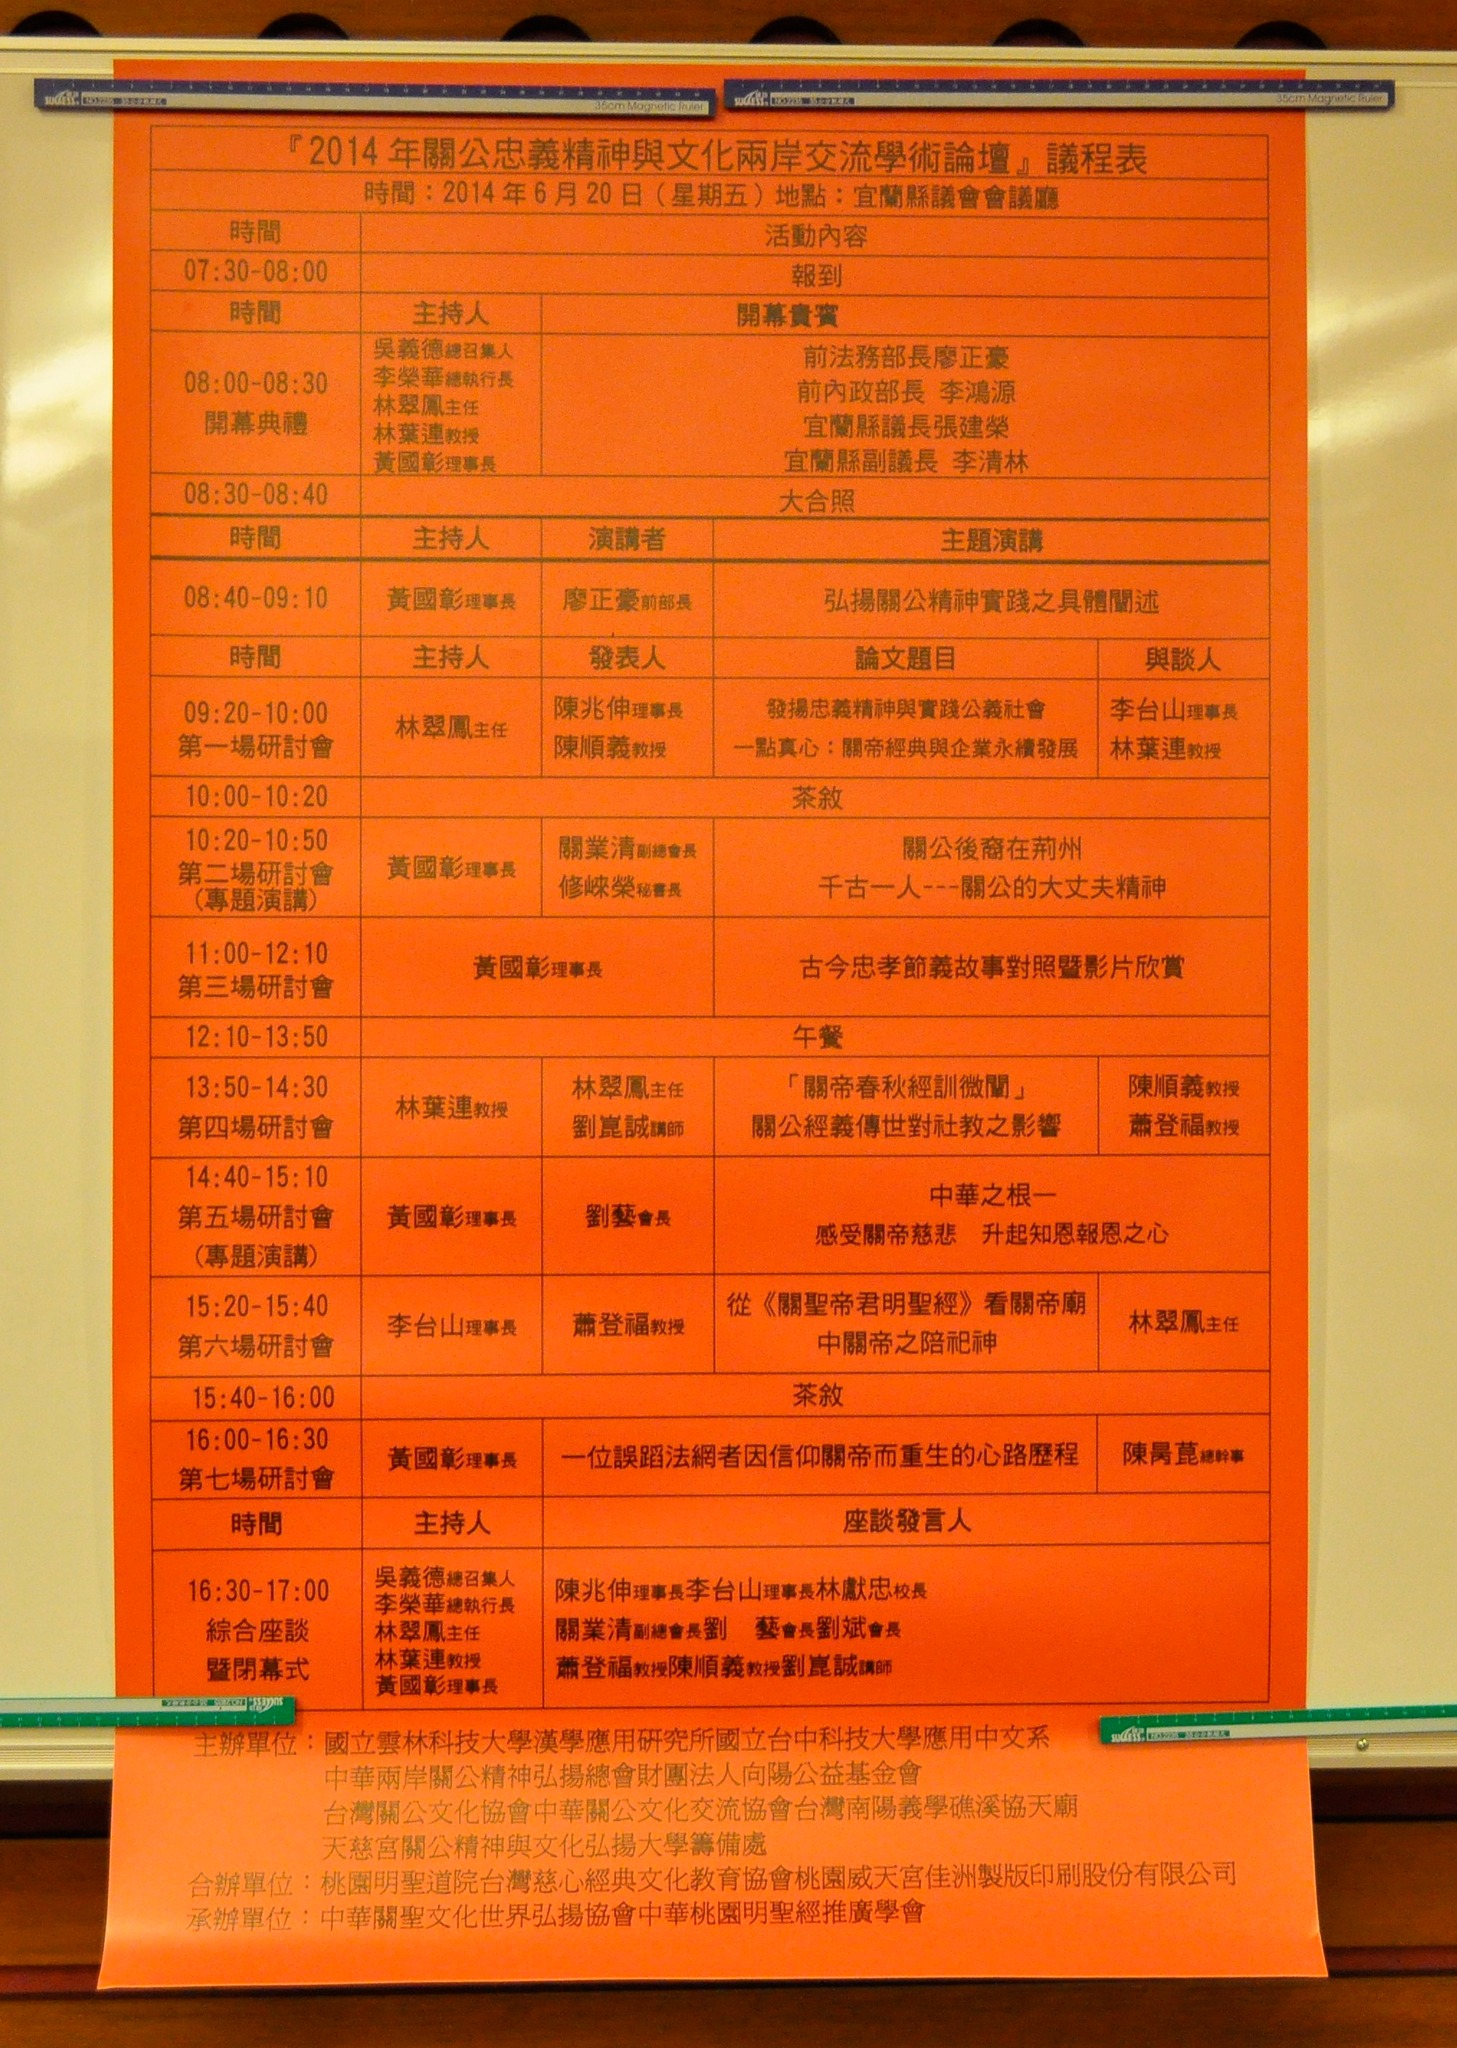 SUCCESS NO.2235 35公分軟鐵尺 35cm Magnetic Ruler
SUCCESS NO.2235 35公分軟鐵尺 35cm Magnetic Ruler
『2014年關公忠義精神與文化兩岸交流學術論壇』議程表
時間：2014年6月20日（星期五）地點：宜蘭縣議會會議廳
時間 活動內容
07:30-08:00 報到
時間 主持人 開幕貴賓
08:00-08:30
開幕典禮
吳義德總召集人
李榮華總執行長
林翠鳳主任
林葉連教授
黃國彰理事長
前法務部長廖正豪
前內政部長 李鴻源
宜蘭縣議長張建榮
宜蘭縣副議長 李清林
08:30-08:40 大合照
時間 主持人 演講者 主題演講
08:40-09:10 黃國彰理事長 廖正豪前部長 弘揚關公精神實踐之具體闡述
時間 主持人 發表人 論文題目 與談人
09:20-10:00
第一場研討會
林翠鳳主任
陳兆伸理事長
陳順義教授
發揚忠義精神與實踐公義社會
一點真心：關帝經典與企業永續發展
李台山理事長
林葉連教授
10:00-10:20 茶敘
10:20-10:50
第二場研討會
(專題演講)
黃國彰理事長
關業清副總會長
修崍榮秘書長
關公後裔在荊州
千古一人---關公的大丈夫精神
11:00-12:10
第三場研討會
黃國彰理事長
古今忠孝節義故事對照暨影片欣賞
12:10-13:50 午餐
13:50-14:30
第四場研討會
林葉連教授
林翠鳳主任
劉崑誠講師
「關帝春秋經訓微闡」
關公經義傳世對社教之影響
陳順義教授
蕭登福教授
14:40-15:10
第五場研討會
(專題演講)
黃國彰理事長
劉藝會長
中華之根一
感受關帝慈悲 升起知恩報恩之心
15:20-15:40
第六場研討會
李台山理事長
蕭登福教授
從《關聖帝君明聖經》看關帝廟
中關帝之陪祀神
林翠鳳主任
15:40-16:00 茶敘
16:00-16:30
第七場研討會
黃國彰理事長
一位誤蹈法網者因信仰關帝而重生的心路歷程
陳 總幹事
時間 主持人 座談發言人
16:30-17:00
綜合座談
暨閉幕式
吳義德總召集人
李榮華總執行長
林翠鳳主任
林葉連教授
黃國彰理事長
陳兆伸理事長李台山理事長林獻忠校長
關業清副總會長劉 藝會長劉斌會長
蕭登福教授陳順義教授劉崑誠講師
主辦單位：國立雲林科技大學漢學應用研究所國立台中科技大學應用中文系
中華兩岸關公精神弘揚總會財團法人向陽公益基金會
台灣關公文化協會中華關公文化交流協會台灣南陽義學礁溪協天廟
天慈宮關公精神與文化弘揚大學籌備處
合辦單位：桃園明聖道院台灣慈心經典文化教育協會桃園威天宮佳洲製版印刷股份有限公司
承辦單位：中華關聖文化世界弘揚協會中華桃園明聖經推廣學會